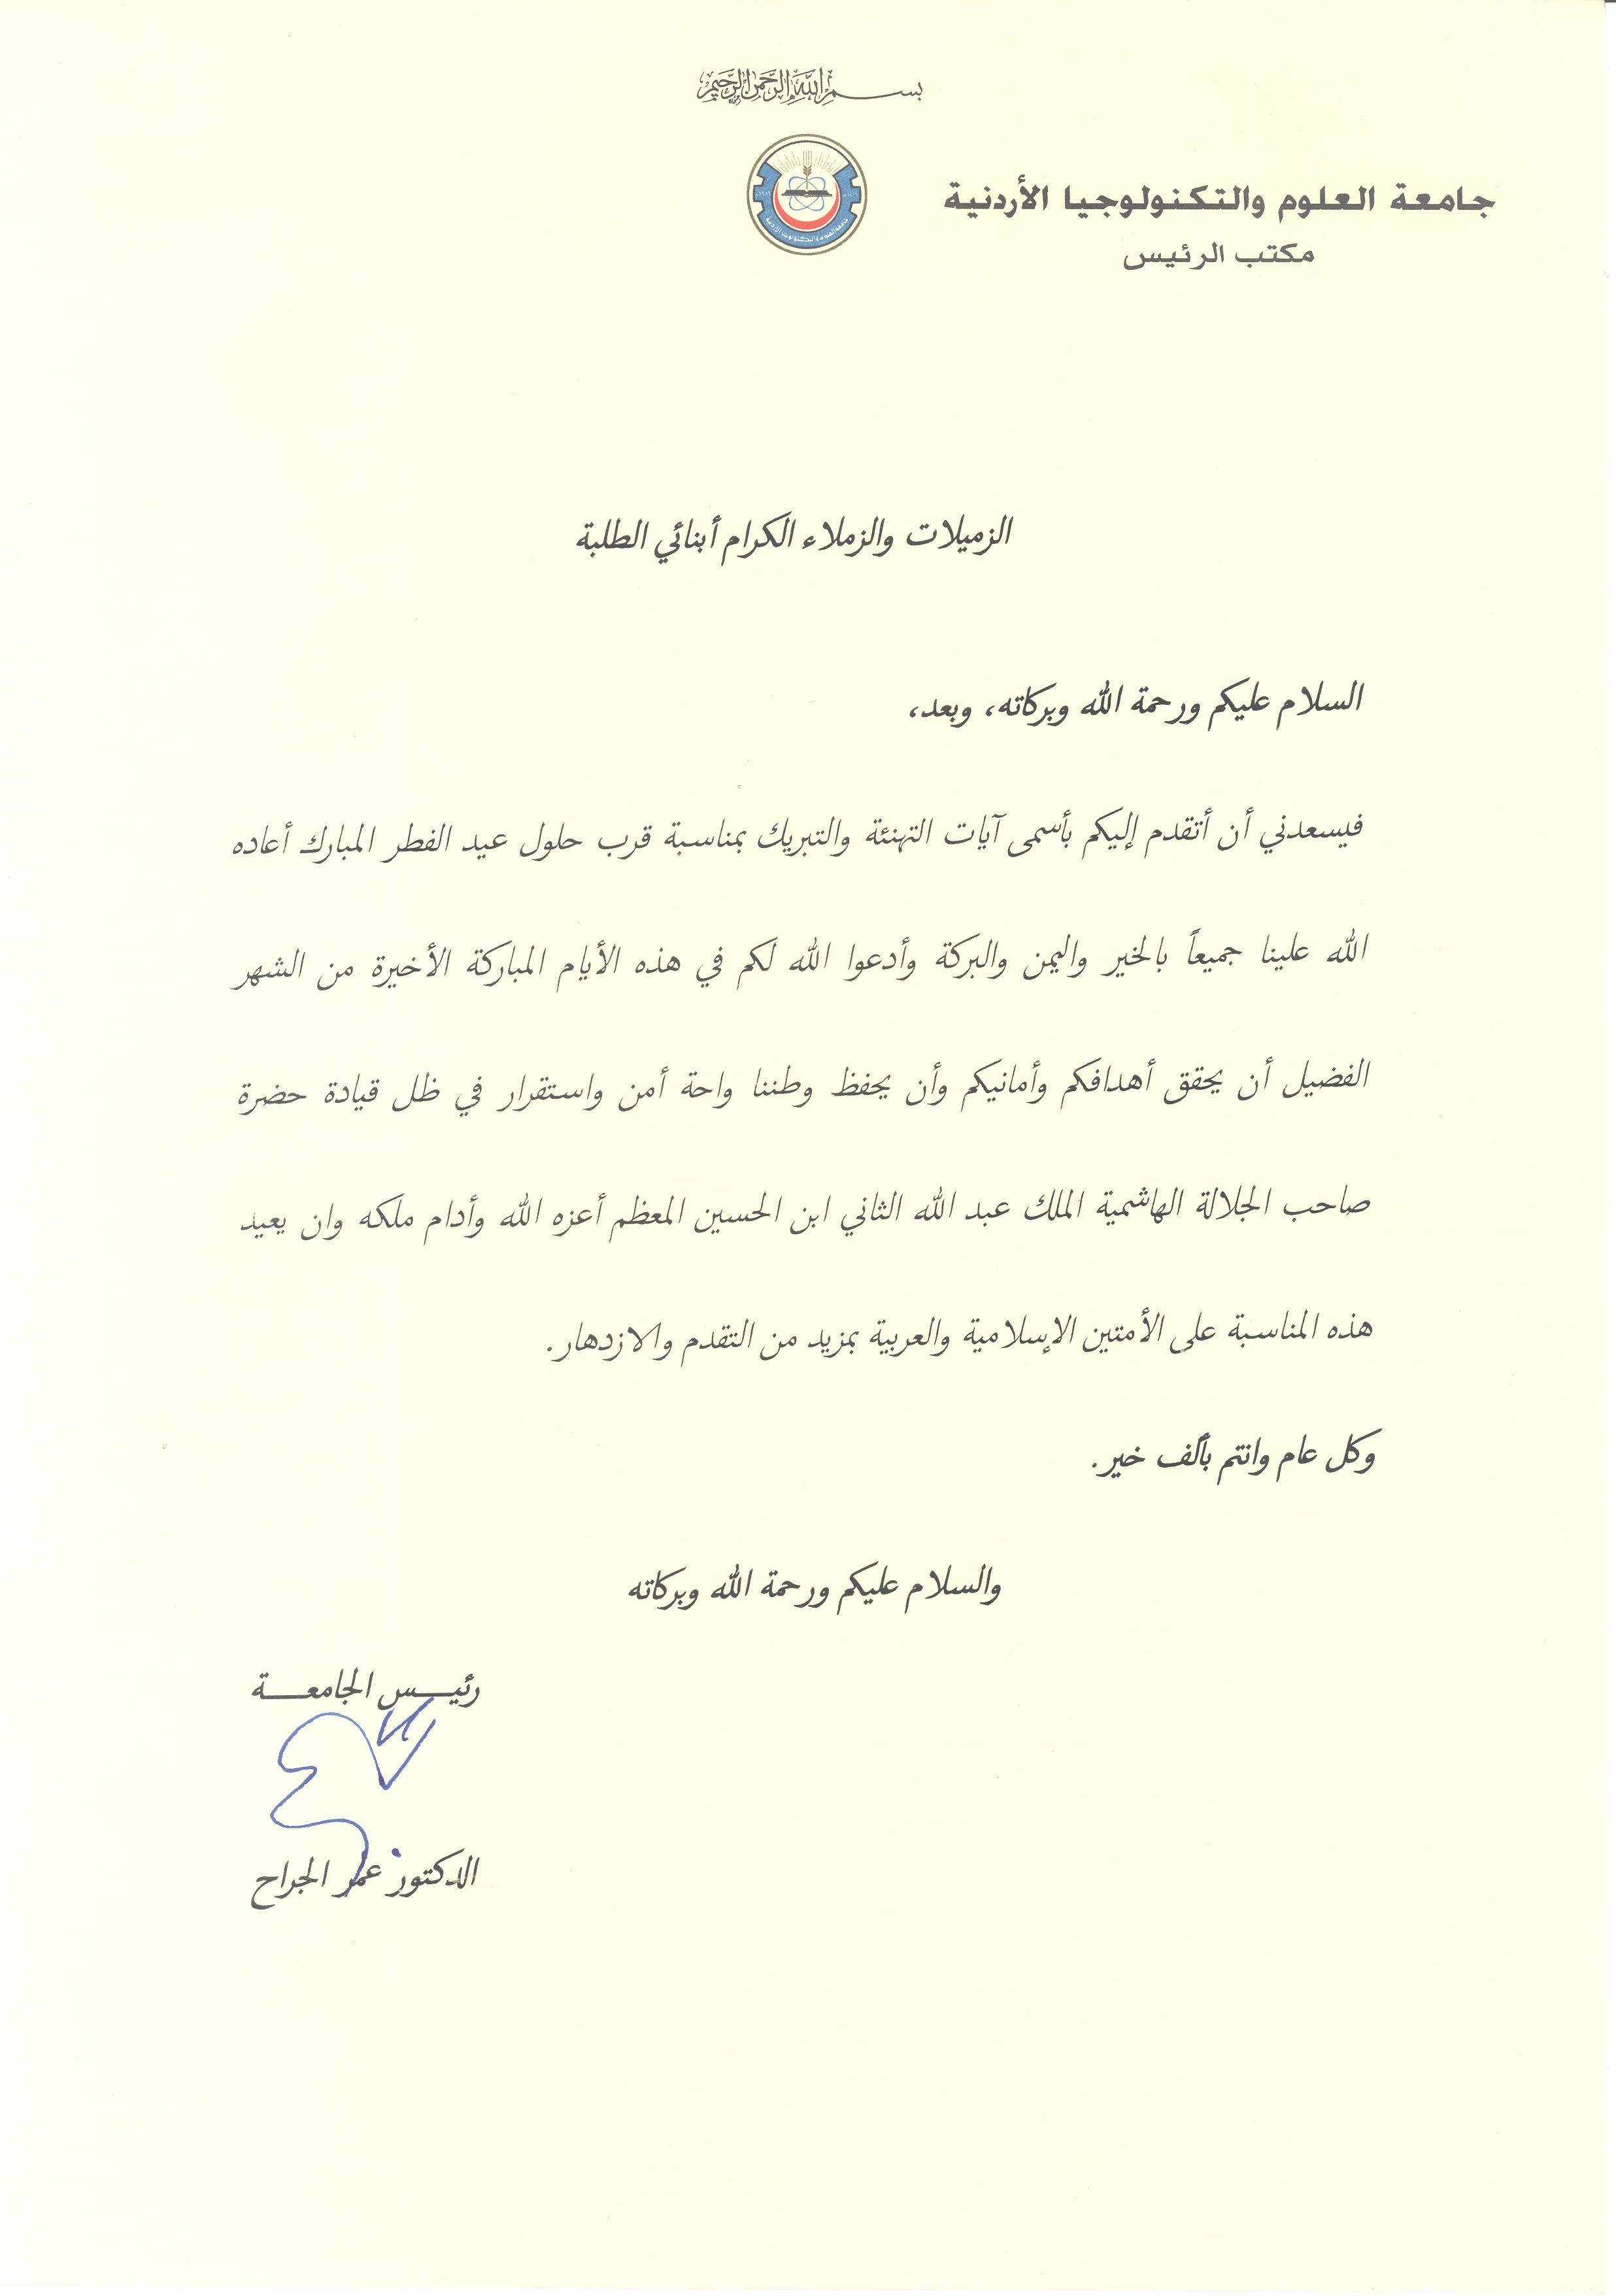 بسم الله الرحمن الرحيم
جامعة العلوم والتكنولوجيا الأردنية
مكتب الرئيس
الزميلات والزملاء الكرام أبنائي الطلبة
السلام عليكم ورحمة الله وبركاته، وبعد،
فيسعدني أن أتقدم إليكم بأسمى آيات التهنئة والتبريك بمناسبة قرب حلول عيد الفطر المبارك أعاده
الله علينا جميعاً بالخير واليمن والبركة وأدعوا الله لكم في هذه الأيام المباركة الأخيرة من الشهر
الفضيل أن يحقق أهدافكم وأمانيكم وأن يحفظ وطننا واحة أمن واستقرار في ظل قيادة حضرة
صاحب الجلالة الهاشمية الملك عبد الله الثاني ابن الحسين المعظم أعزه الله وأدام ملكه وان يعيد
هذه المناسبة على الأمتين الإسلامية والعربية بمزيد من التقدم والازدهار.
وكل عام وانتم بألف خير.
والسلام عليكم ورحمة الله وبركاته
رئيــس الجامعــة
الدكتور عمر الجراح